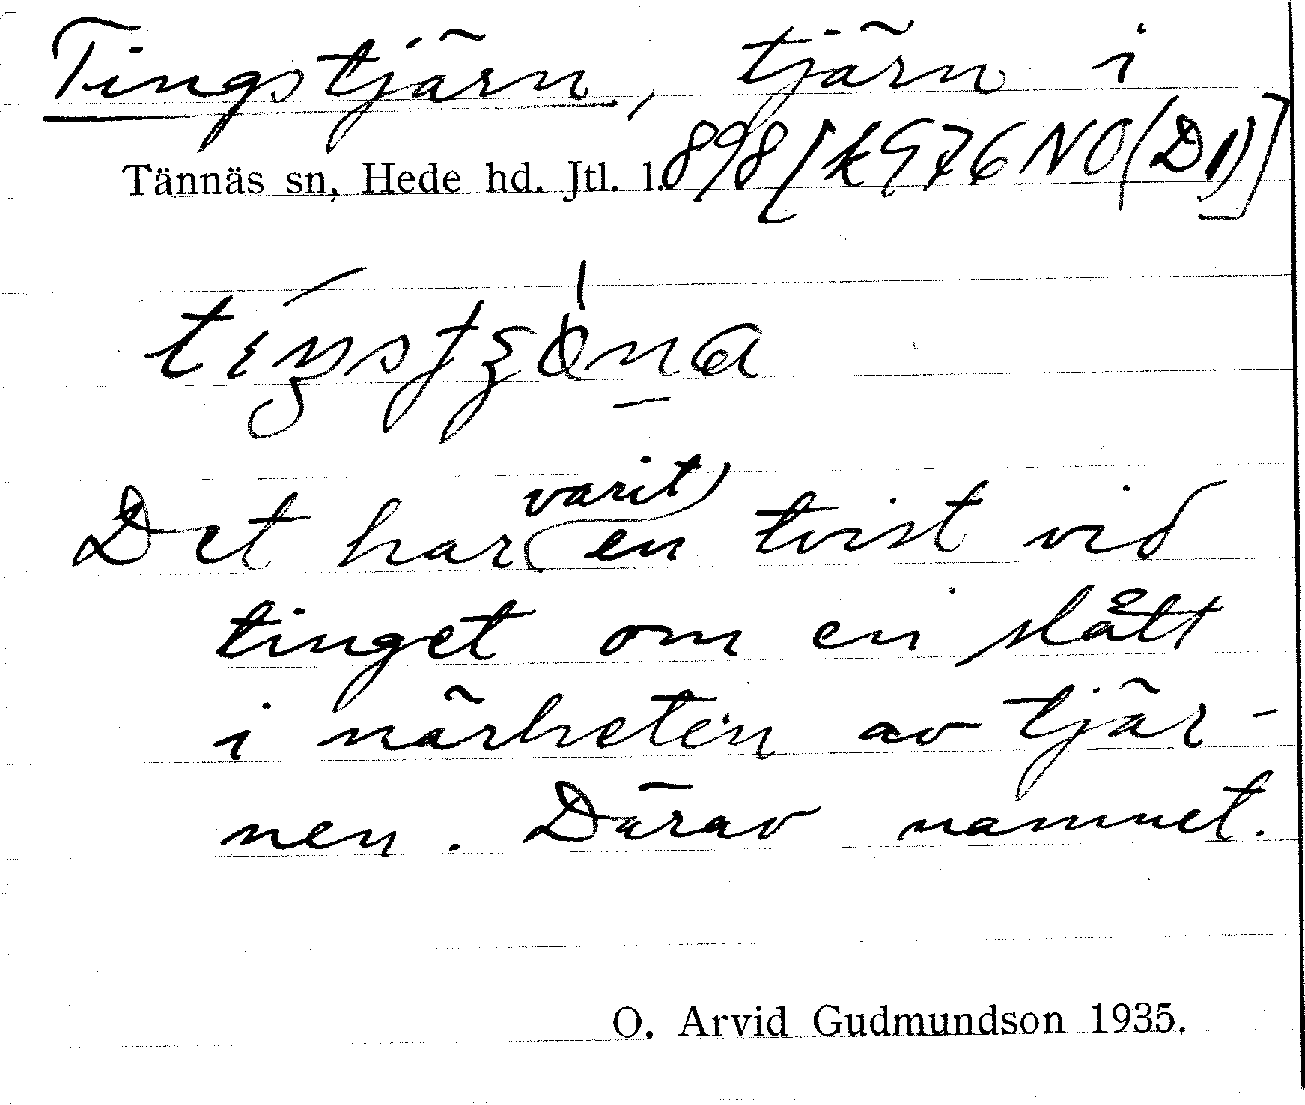 Tingstjärn, tjärn i
Tännäs sn, Hede hd. Jtl. l. 898[k976NO(D1)]
Det har varit en tvist vid
tinget om en slått
i närheten av tjär-
nen. Därav namnet.
O. Arvid Gudmundson 1935.